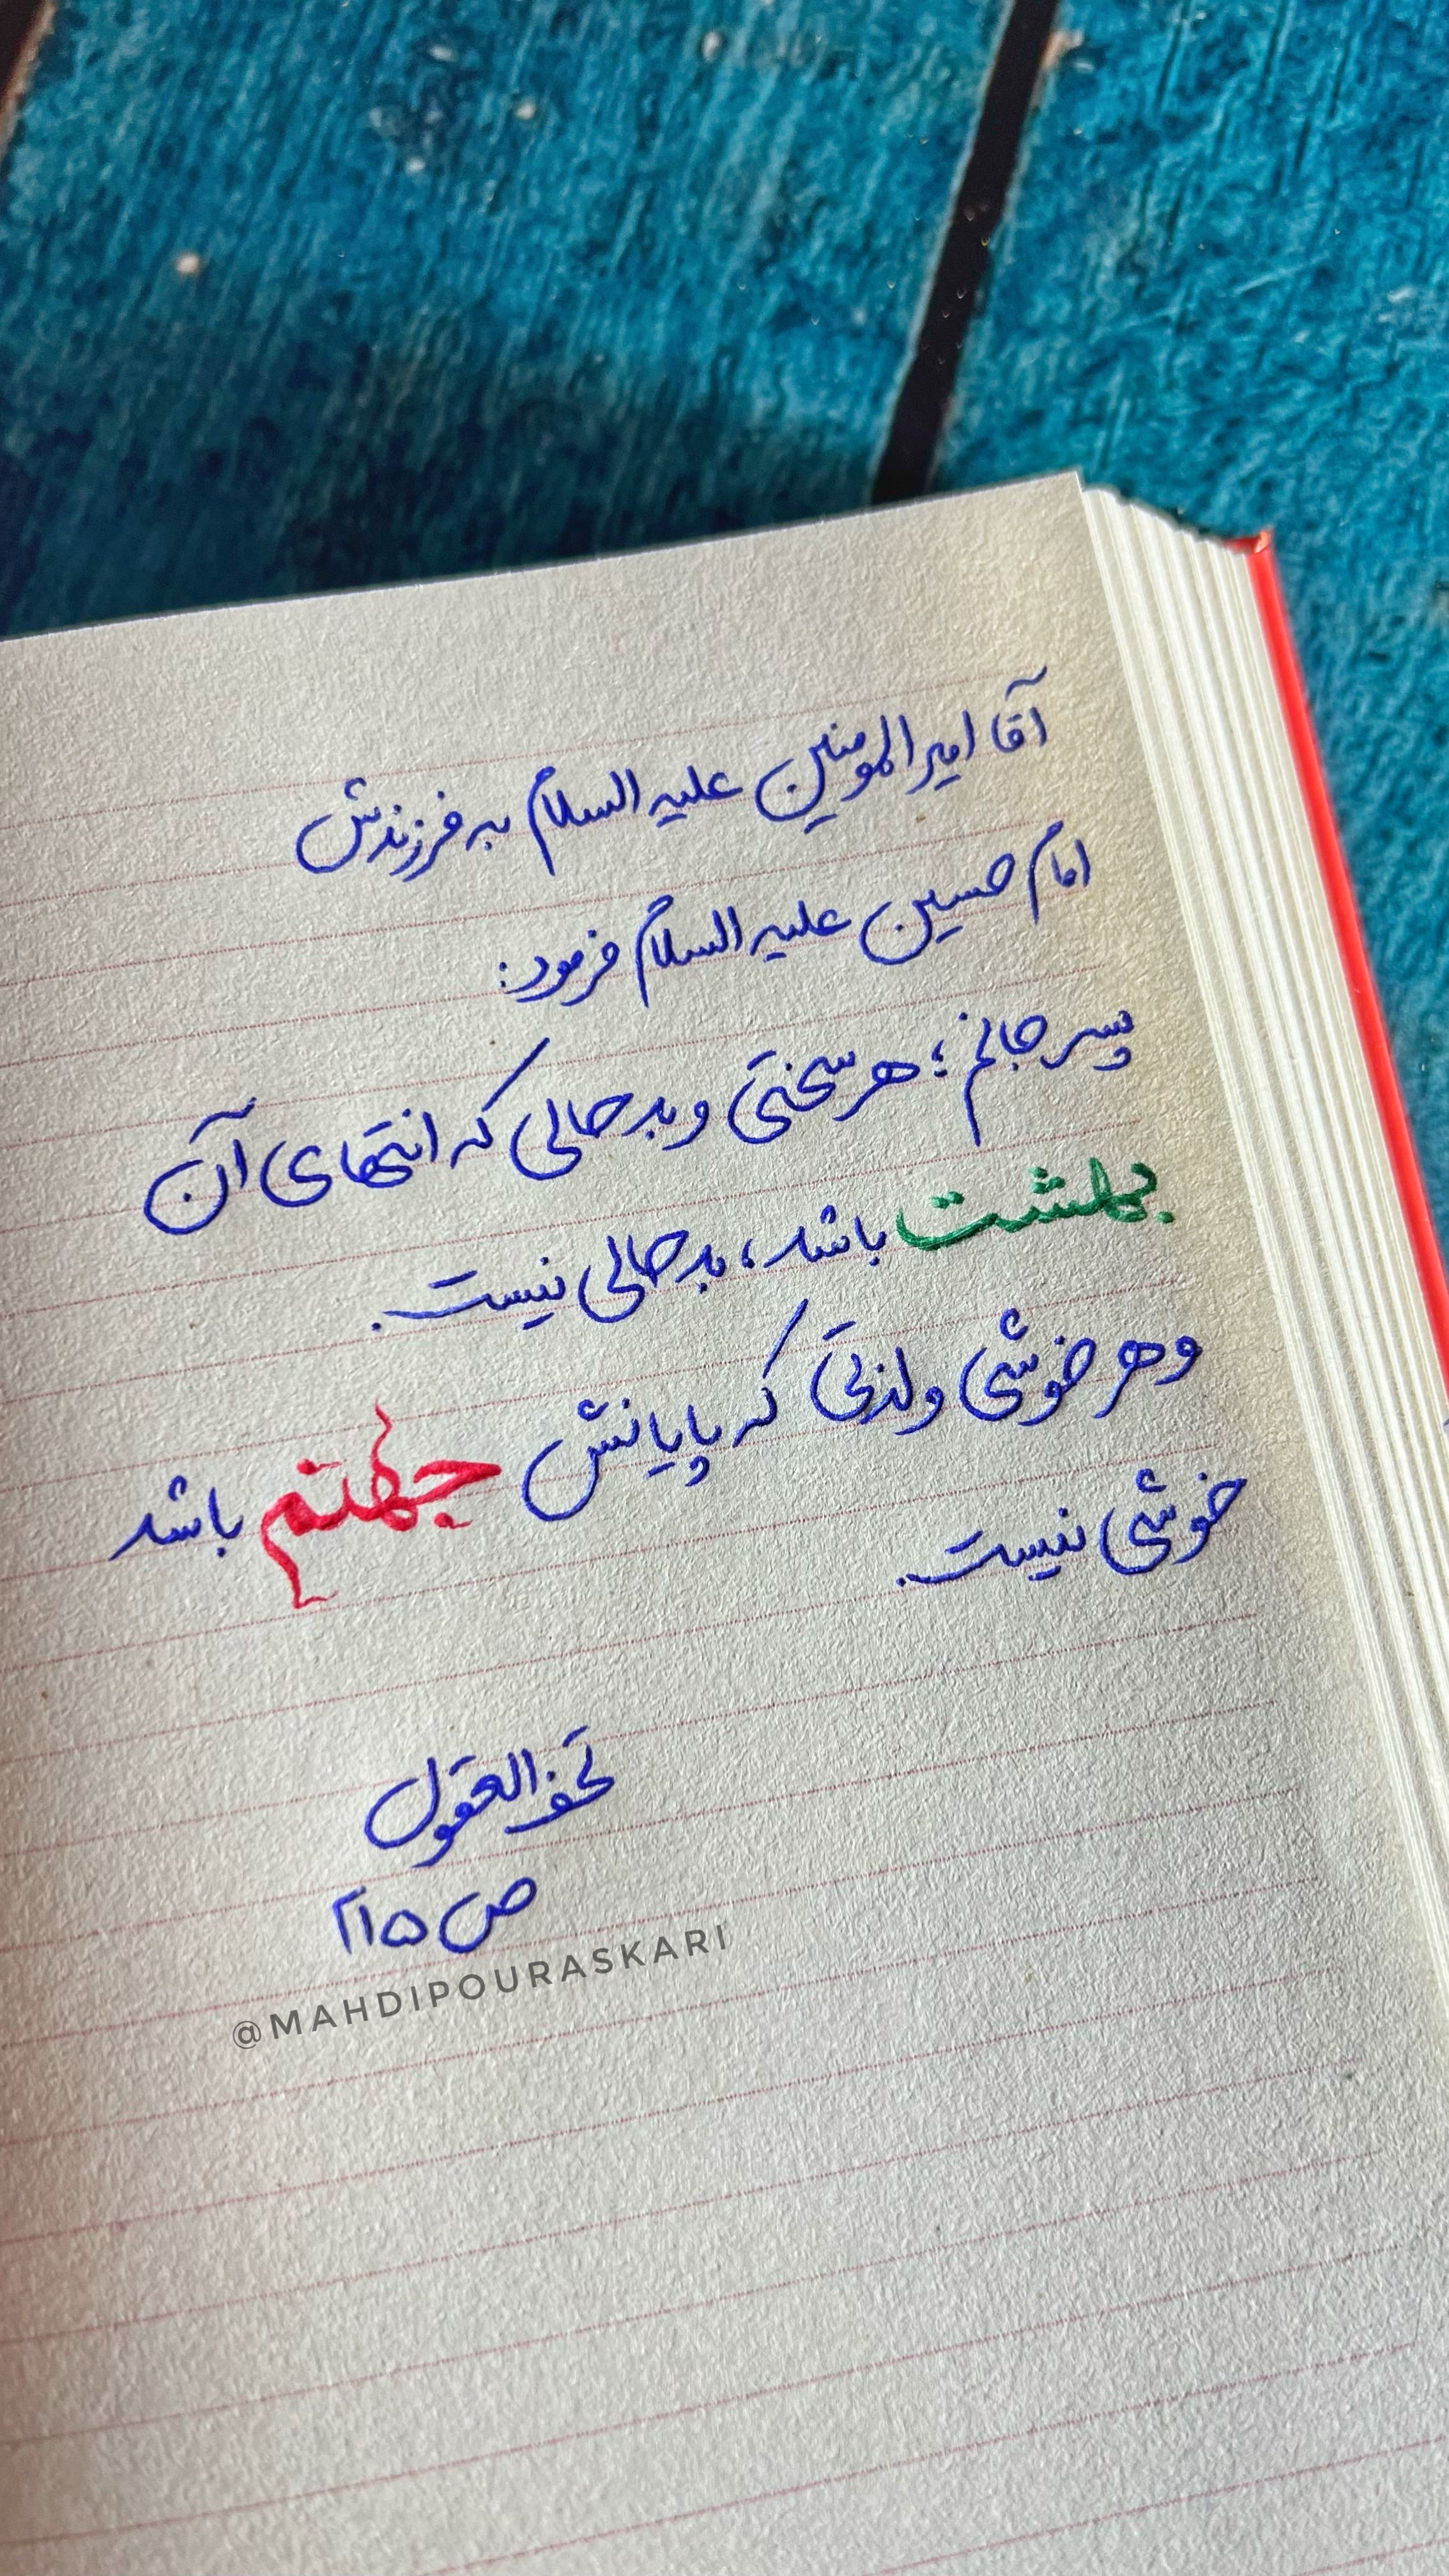 آقا امیرالمومنین علیه السلام به فرزندش
امام حسین علیه السلام فرمود:
پسر جانم؛ هر سختی و بدحالی که انتهای آن
بهشت باشد، بدحالی نیست.
و هر خوشی و لذتی که پایانش جهنم باشد
خوشی نیست.
تحف العقول
ص ۲۱۵
@MAHDIPOURASKARI